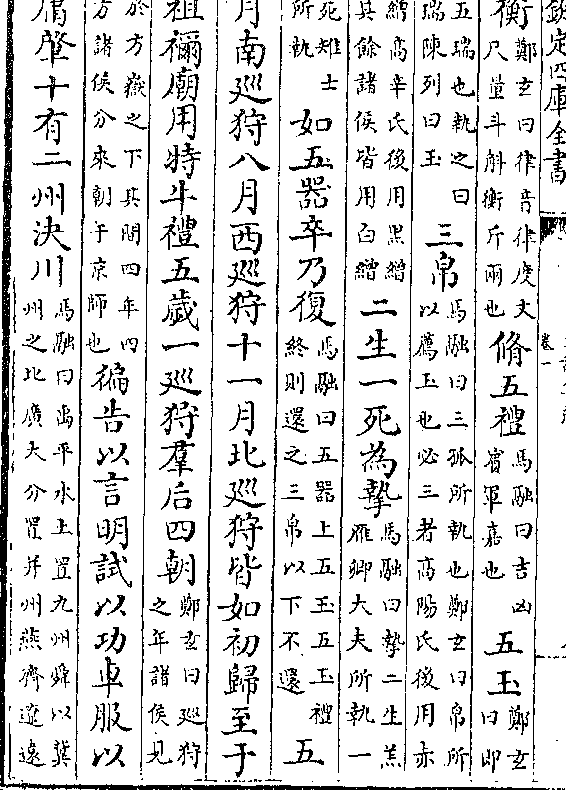 欽定四庫全書
卷一
衡鄭玄曰律音律度丈
尺量斗斛衡斤兩也脩五禮馬融曰吉凶
賓軍嘉也五玉鄭玄
曰即
五瑞也執之曰
瑞陳列曰玉三帛馬融曰三孤所執也鄭玄曰帛所
以薦玉也必三者高陽氏後用赤
繒高辛氏後用黑繒
其餘諸侯皆用白繒二生一死為摯馬融曰摯二生羔
雁卿大夫所執一
死雉士
所執如五器卒乃復馬融曰五器上五玉五玉禮
終則還之三帛以下不還五
月南巡狩八月西巡狩十一月北巡狩皆如初歸至于
祖禰廟用特牛禮五歲一巡狩羣后四朝鄭玄曰巡狩
之年諸侯見
於方嶽之下其間四年四
方諸侯分來朝于京師也徧告以言明試以功車服以
庸肇十有二州決川馬融曰禹平水土置九州舜以冀
州之北廣大分置并州燕齊遼遠